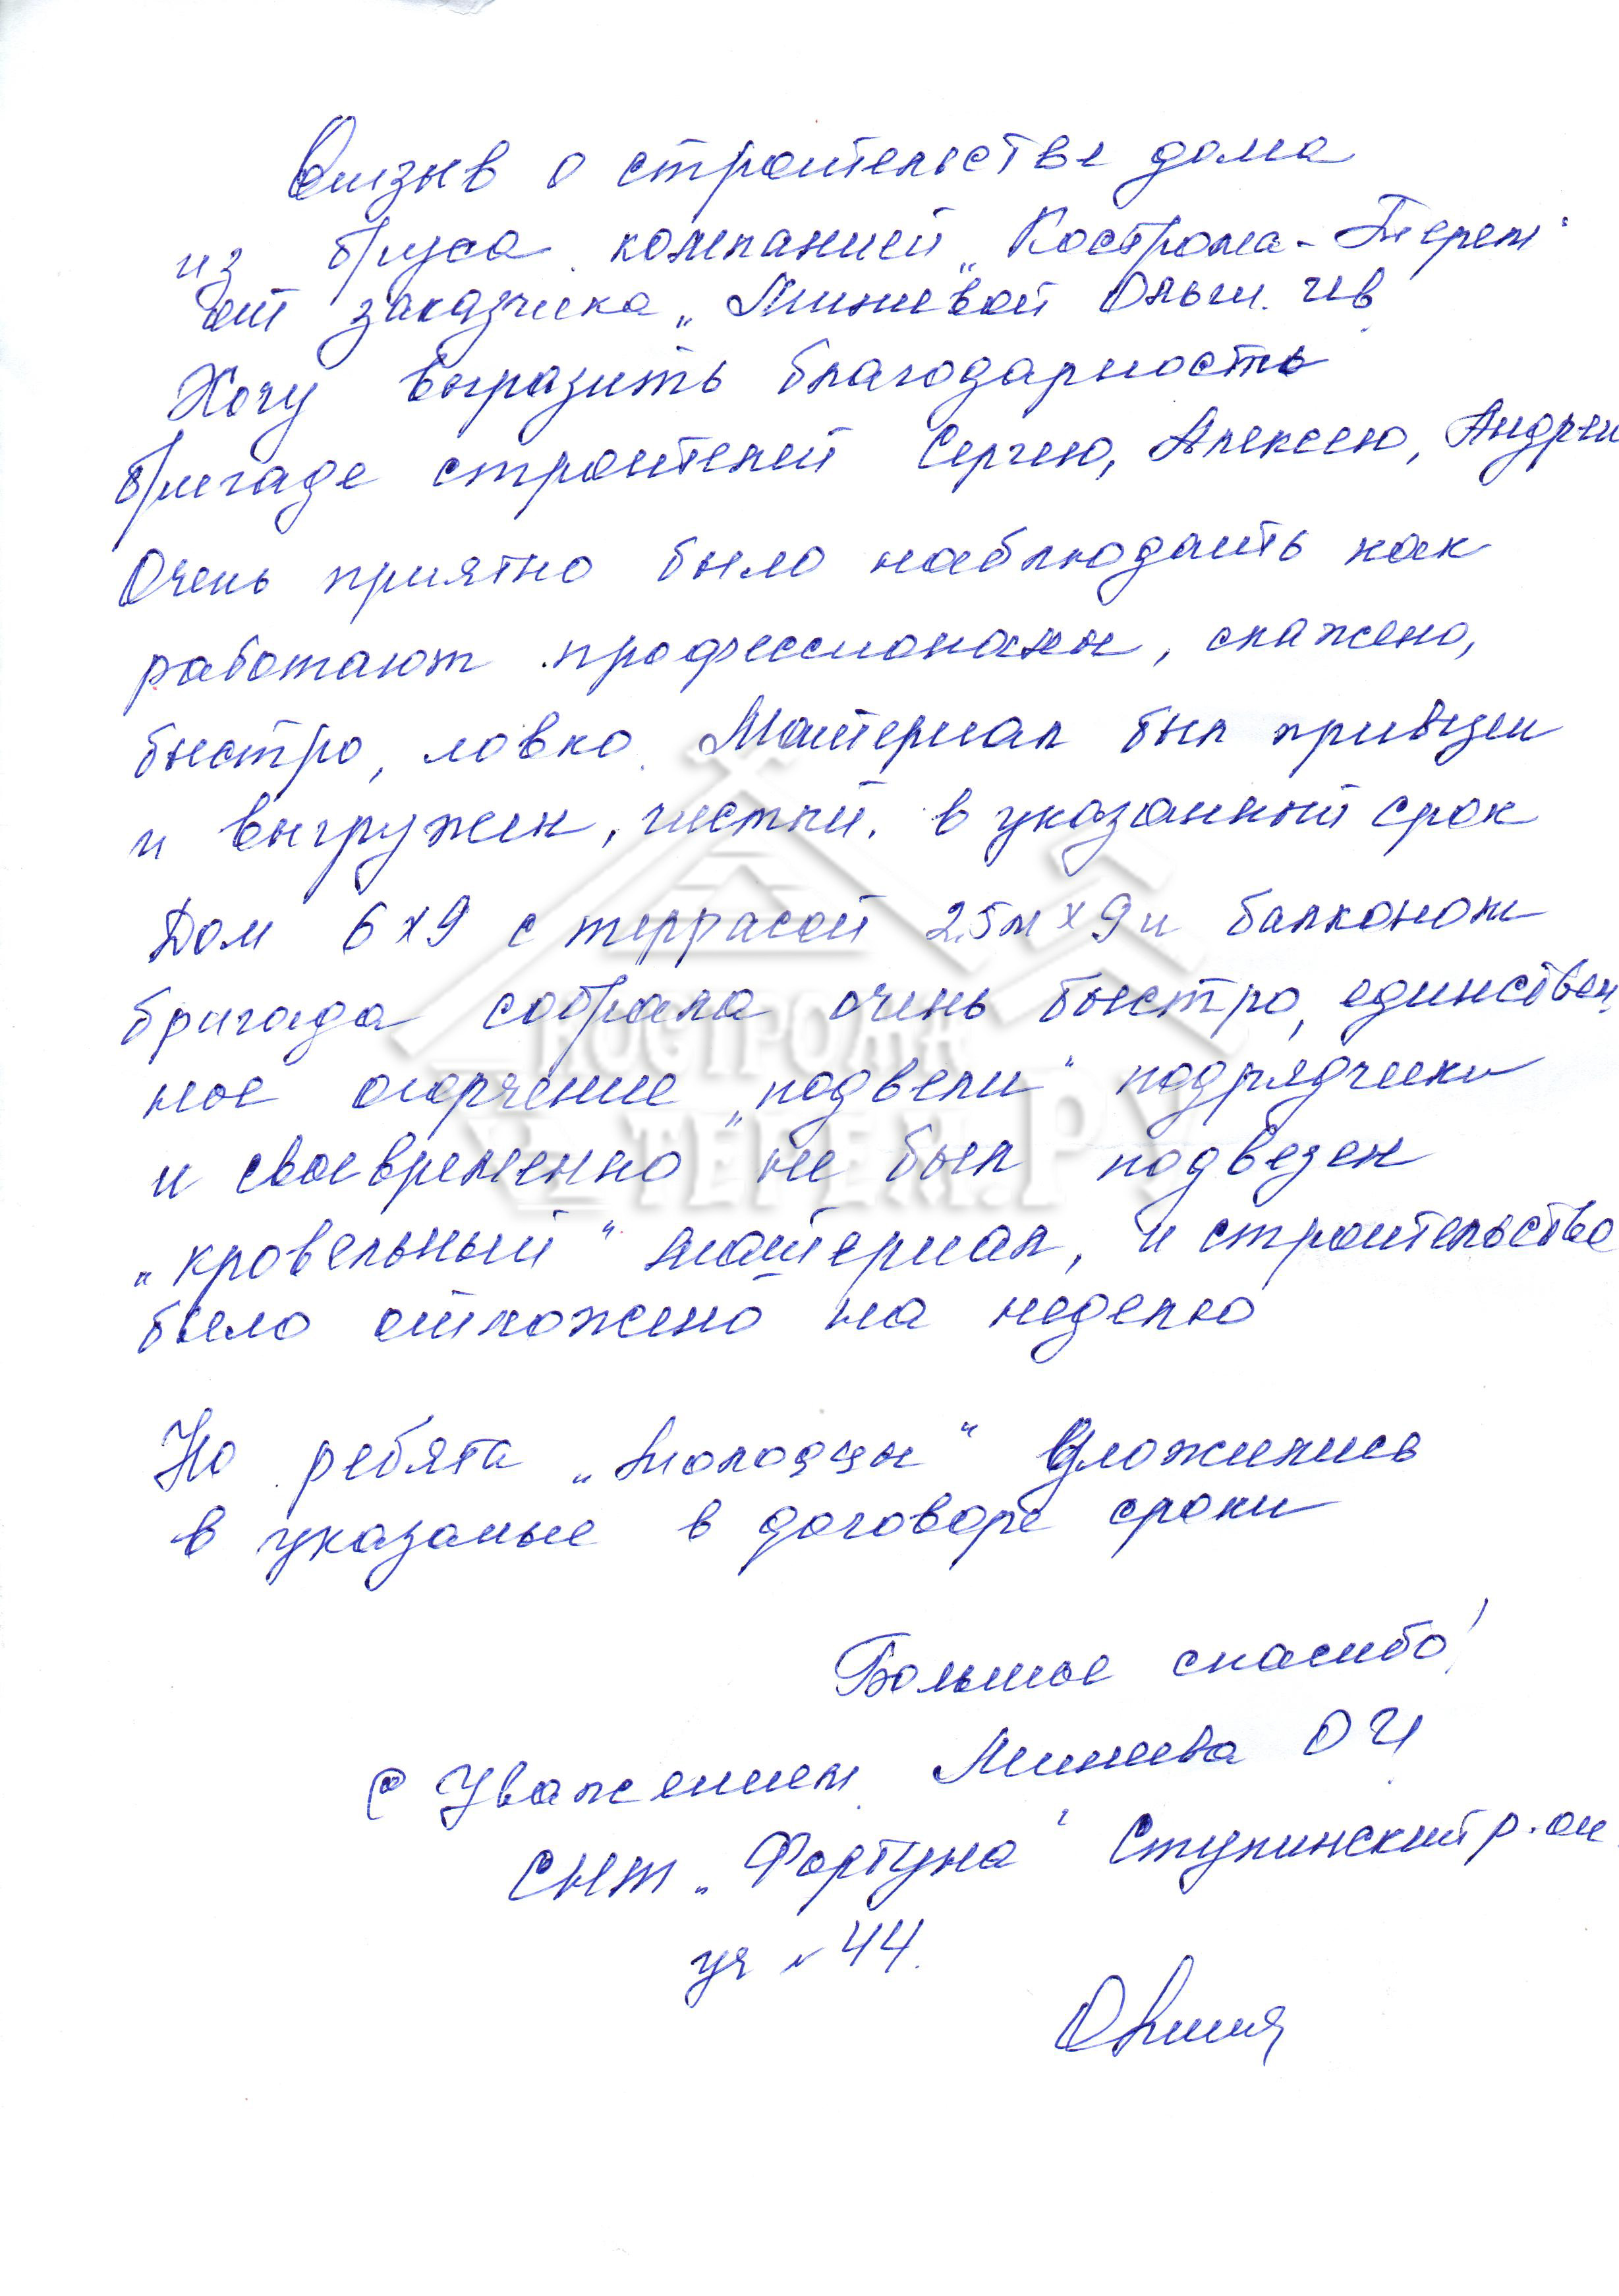 Отзыв о строительстве дома
из бруса компанией „Кострома-Терем"
от заказчика „Минеевой Ольги. Ив
Хочу выразить благодарность
бригаде строителей Сергею, Алексею, Андрею
Очень приятно было наблюдать как
работают профессионалы, слажено,
быстро, ловко. Материал был привезен
и выгружен, чистый, в указанный срок
Дом 6х9 с террасой 2,5м х 9 и балконом
бригада собрала очень быстро, единствен
ное огорчение „подвели" подрядчики
и своевременно не был подвезен
„кровельный" материал, и строительство
было отложено на неделю
Но ребята „молодцы" уложились
в указаные в договоре сроки
Большое спасибо!
С Уважением Минеева О И
СНТ „Фортуна" Ступинский р-он
уч № 44.
КОСТРОМА
ТЕРЕМ.РУ